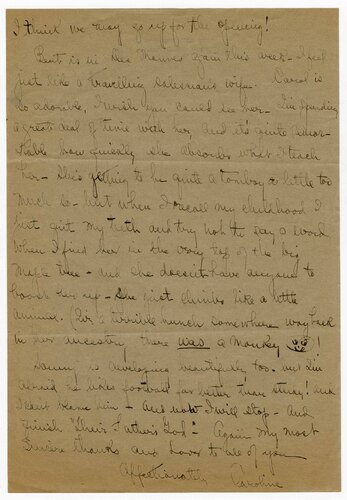 I think we may go up for the opening!
Bent is in Des Moines again this week - I feel
just like a travelling salesman's wife. Carol is
so adorable, I wish you could see her - I'm spending
a great deal of time with her, and it's quite remar-
kable how quickly she absorbs what I teach
her - She's getting to be quite a tomboy - a little too
much so - but when I recall my childhood I
just grit my teeth and try not to say a word
when I find her in the very top of the big
maple tree - and she doesn't have anyone to
boost her up - she just climbs like a little
animal. (I've a terrible hunch somewhere way back
in her ancestry, there was a monkey)!
is developing beautifully too - but I'm
afraid he likes football far better than study! and
I can't blame him - And now I will stop - And
finish "Their Father's God" - Again my most
sincere thanks and love to all of you
Affectionately Caroline